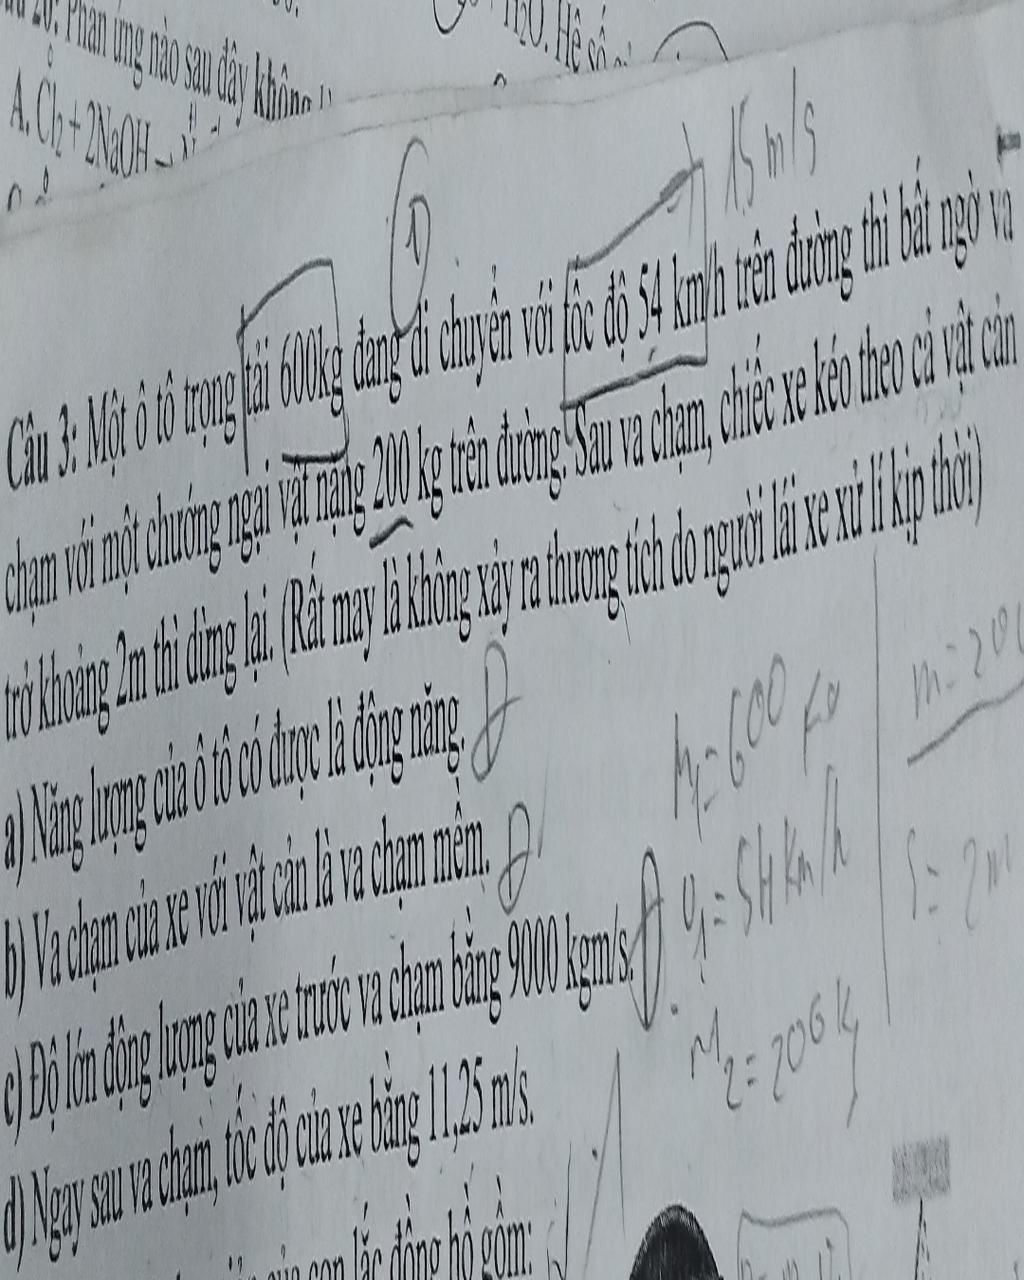 20: Phản ứng nào sau đây không
H2O. Hệ số
A. Cl2 + 2NaOH →
①
15 m/s
Câu 3: Một ô tô trọng tải 600kg đang di chuyển với tốc độ 54 km/h trên đường thì bất ngờ va
chạm với một chướng ngại vật nặng 200 kg trên đường. Sau va chạm, chiếc xe kéo theo cả vật cản
trở khoảng 2m thì dừng lại. (Rất may là không xảy ra thương tích do người lái xe xử lí kịp thời)
a) Năng lượng của ô tô có được là động năng. Đ
b) Va chạm của xe với vật cản là va chạm mềm. Đ
c) Độ lớn động lượng của xe trước va chạm bằng 9000 kgm/s. Đ
d) Ngay sau va chạm, tốc độ của xe bằng 11,25 m/s.
m1 = 600 kg
v1 = 54 km/h
m2 = 200 kg
m = 20
s = 2m
của con lắc đồng hồ gồm: